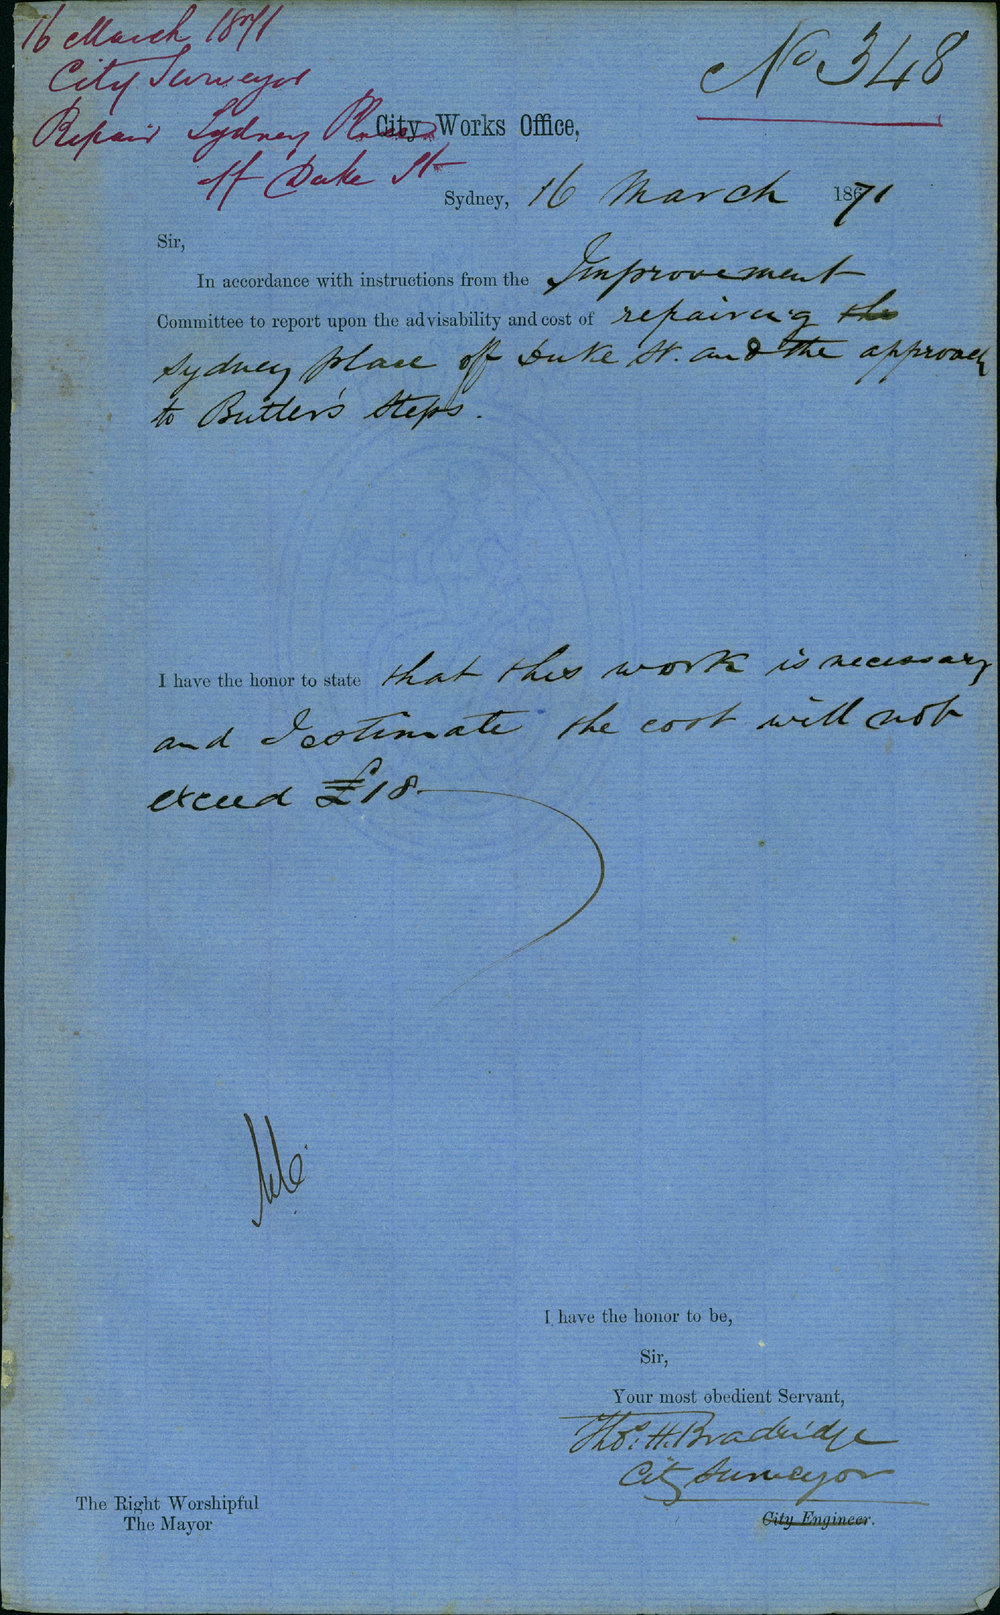 16 March 1871
City Surveyor
Repair Sydney Place
off Duke St
No 348
City Works Office,
Sydney, 16 March 1871
Sir,
In accordance with instructions from the Improvement
Committee to report upon the advisability and cost of repairing the
Sydney place off Duke St. and the approach
to Butler's Steps.
I have the honor to state that this work is necessary
and I estimate the cost will not
exceed £18
I have the honor to be,
Sir,
Your most obedient Servant,
Thos. H. Bradridge
City Surveyor
City Engineer.
The Right Worshipful
The Mayor